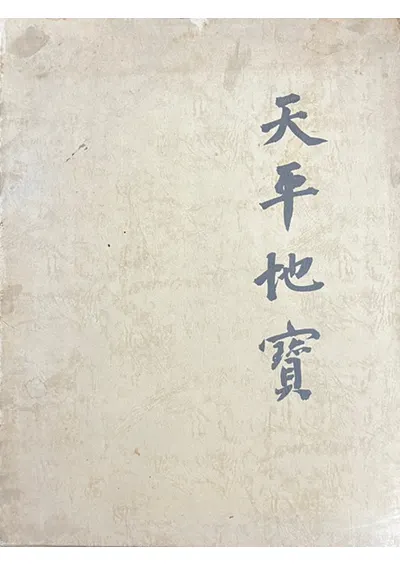 天平地寶